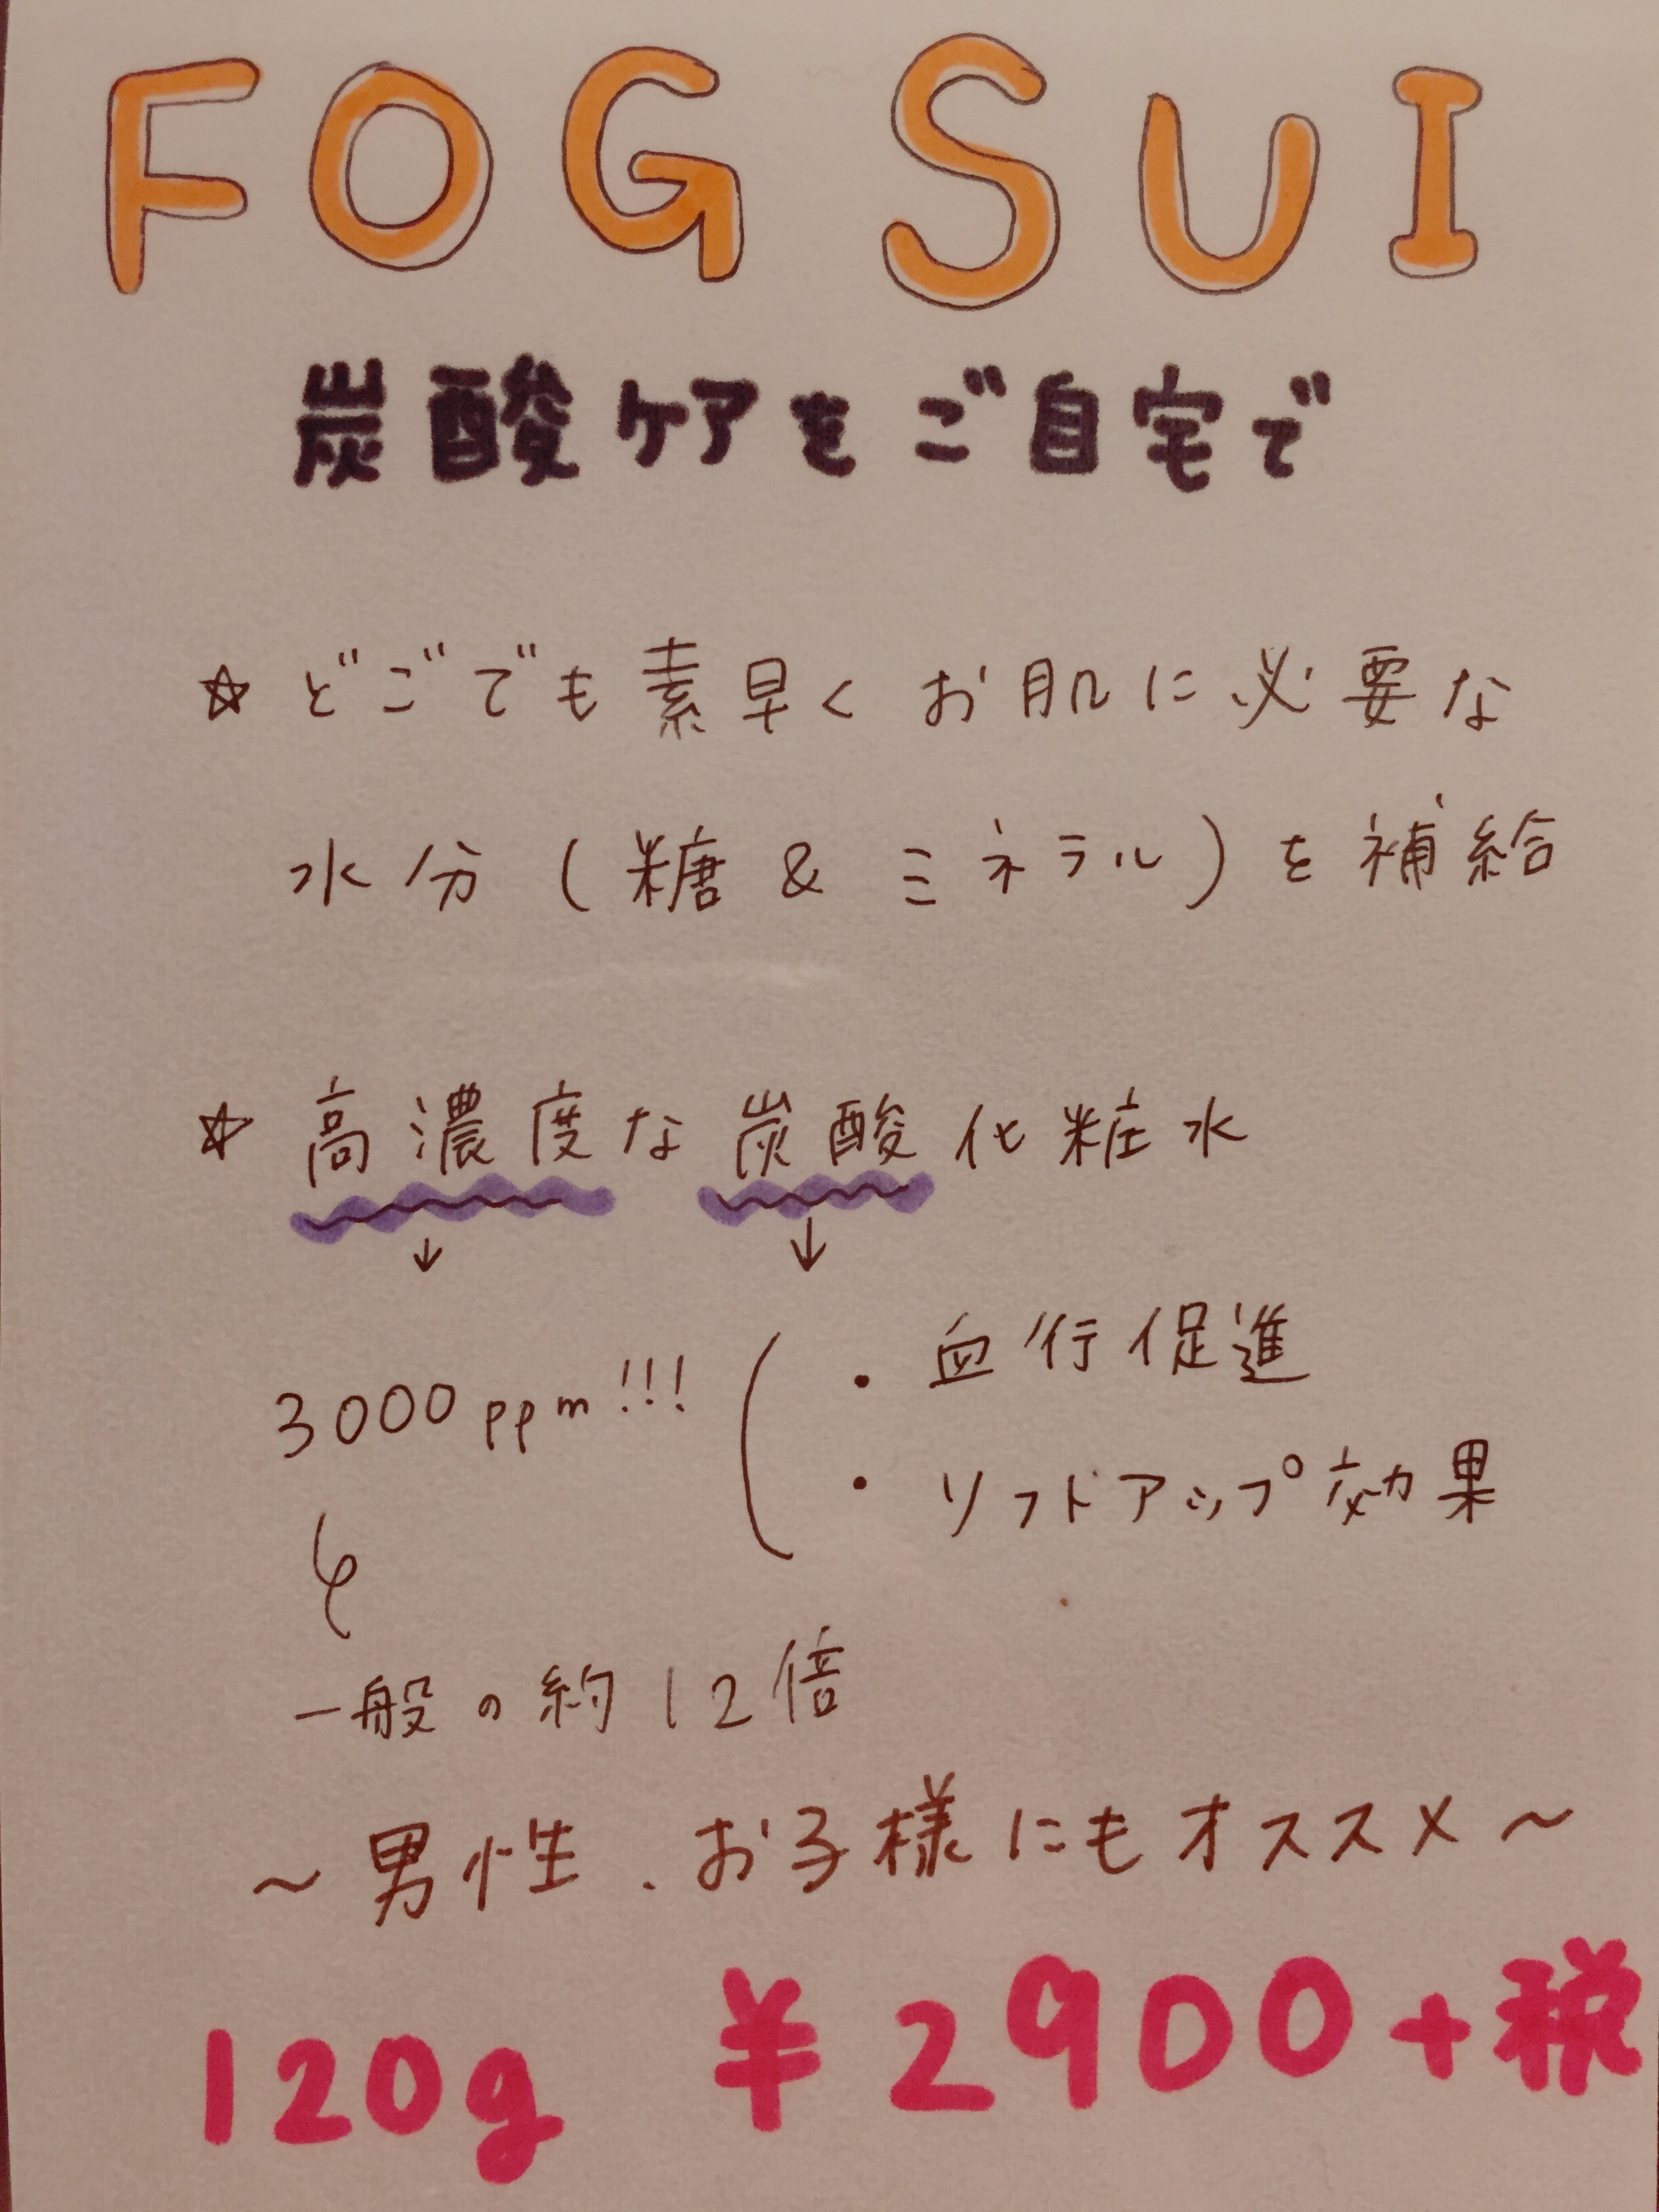 FOG SUI
炭酸ケアをご自宅で
☆どごでも素早くお肌に必要な
水分(糖&ミネラル)を補給
☆高濃度な炭酸化粧水
↓ ↓
3000ppm!!!
・血行促進
・リフトアップ効果
一般の約12倍
~男性、お子様にもオススメ~
120g ¥2900+税